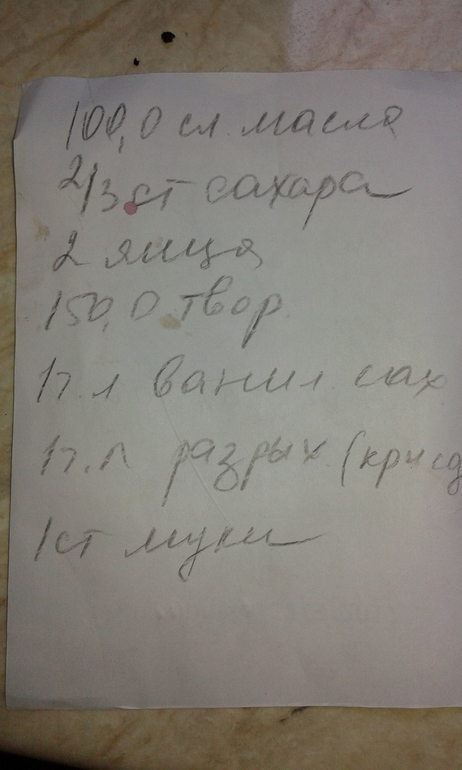 100,0 сл. масла
2/3 ст сахара
2 яйца
150,0 твор.
1 ч. л ванил. сах
1 ч. л разрых. (
1 ст муки